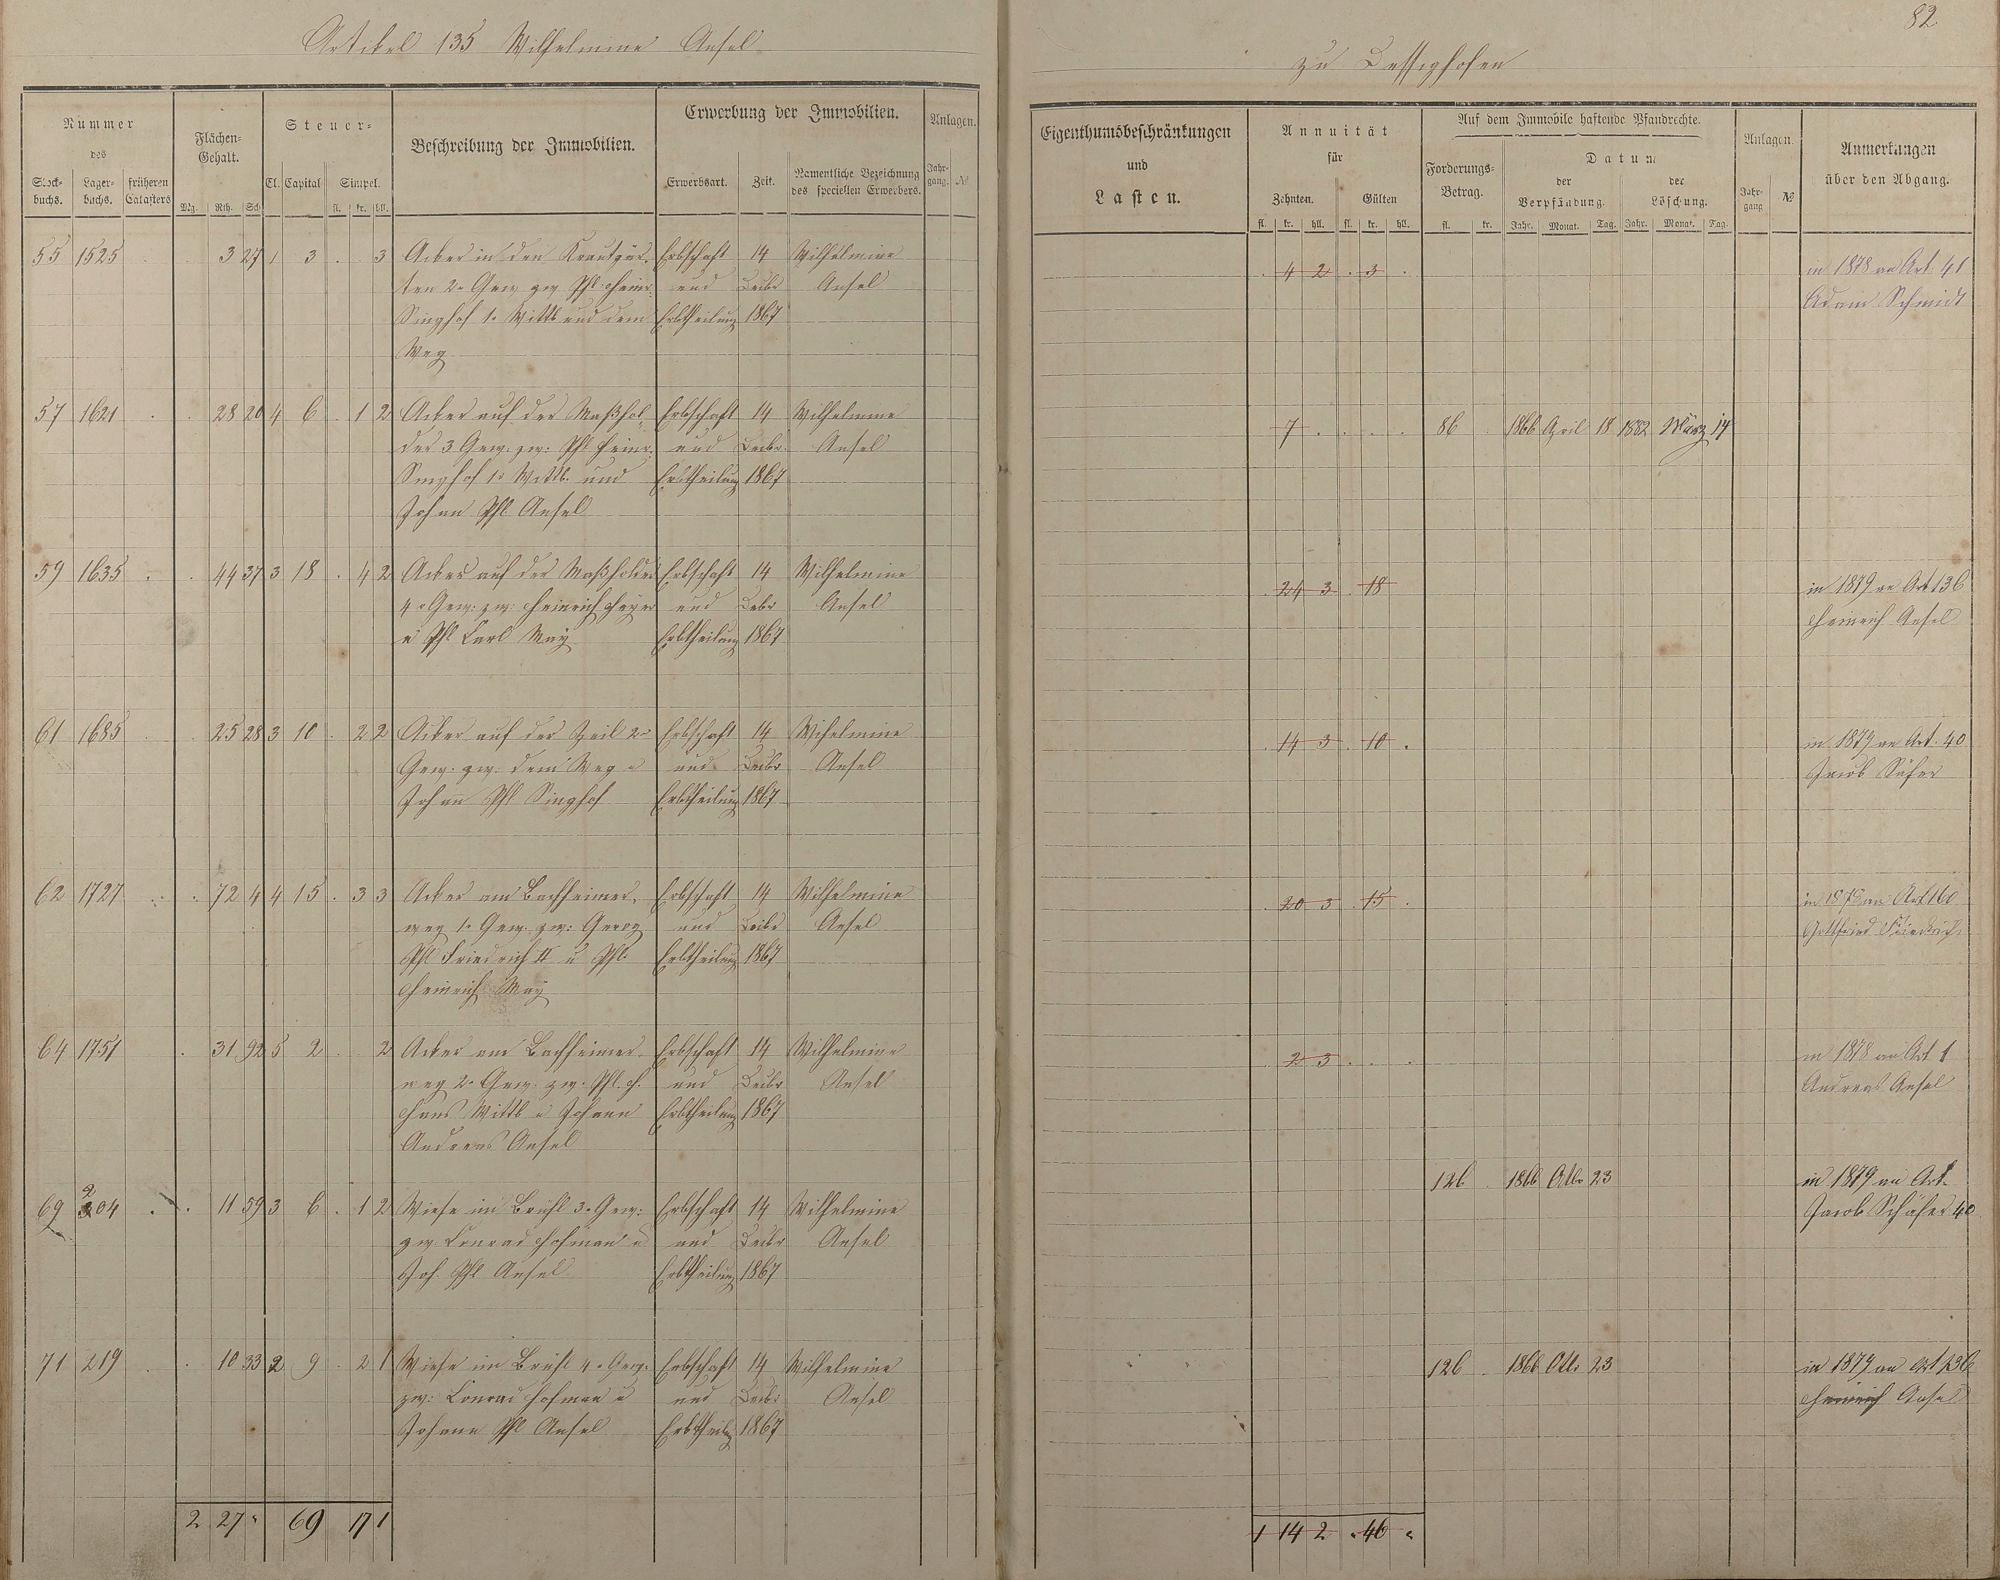 Artikel 135 Wilhelmine Ansel
82
zu Dessighofen
Nummer des
Stock-buchs. Lager-buchs. früheren Catasters
Flächen-Gehalt.
Mg. Rth. Sch.
Steuer-
Cl. Capital Simpel.
fl. kr. hll.
Beschreibung der Immobilien.
Erwerbung der Immobilien.
Erwerbsart. Zeit. Namentliche Bezeichnung des speciellen Erwerbers.
Anlagen.
Jahr-gang. №
Eigenthumsbeschränkungen und Lasten.
Annuität für
Zehnten. Gülten
fl. kr. hll. fl. kr. hll.
Auf dem Immobile haftende Pfandrechte.
Forderungs-Betrag.
fl. kr.
Datum
der Verpfändung. der Löschung.
Jahr. Monat. Tag. Jahr. Monat. Tag.
Anlagen
Jahr-gang №
Anmerkungen über den Abgang.
55 1525 . . 3 27 1 3 . 3 Acker in den Krautgär- Erbschaft 14 Wilhelmine . 4 2 . 3 . in 1878 an Art. 41
ten 2r Gew zw Phl. Heinr. und Decbr Ansel Adam Schmidt
Singhof 1r Wittb und dem Erbtheilung 1867
Weg
57 1621 . . 28 20 4 6 . 1 2 Acker auf der Maßhol- Erbschaft 14 Wilhelmine 7 . . . . 86 . 1866 April 18 1882 März 14
der 3 Gew. zw: Phl Heinr. und Decbr. Ansel
Singhof 1r Wittb. und Erbtheilung 1867
Johan Phl. Ansel
59 1635 . . 44 37 3 18 . 4 2 Acker auf der Maßholder Erbschaft 14 Wilhelmine . 24 3 . 18 in 1879 an Art 136
4r Gew: zw: Heinrich Heyer und Debr Ansel Heinrich Ansel
u Phl Carl May Erbtheilung 1867
61 1685 . . 25 28 3 10 . 2 2 Acker auf der Zeil 2r Erbschaft 14 Wihelmine . 14 3 . 10 . in 1879 an Art. 40
Gew. zw: dem Weg u und Decbr Ansel Jacob Säfer
Johan Phl Singhof Erbtheilung 1867
62 1727 . . 72 4 4 15 . 3 3 Acker am Bachheimer- Erbschaft 14 Wilhelmine . 20 3 . 15 . in 1879 an Art 160
weg 1r Gew. zw: Georg und Decbr Ansel Gottfried Friedrich
Phl Friedrich II u Phl. Erbtheilung 1867
Heinrich May
64 1751 . 31 92 5 2 . 2 Acker am Bachheimer- Erbschaft 14 Wilhelmine . 2 3 . . . in 1878 an Art 1
weg 2r Gew. zw. Phl. H. und Decbr Ansel Andreas Ansel
Hans Wittb u Johann Erbtheilung 1867
Andreas Ansel
69 204 . . 11 59 3 6 . 1 2 Wiese im Brühl 3r Gew: Erbschaft 14 Wilhelmine 126 . 1866 Otbr 23 in 1879 an Art.
zw. Conrad Hofman u und Decbr Ansel Jacob Schäfer 40
Joh. Phl Ansel Erbtheilung 1867
71 219 . . 10 33 2 9 . 2 1 Wiese im Brühl 4r Gew: Erbschaft 14 Wilhelmine 126 . 1866 Otbr 23 in 1879 an Art 136
zw: Conrad Hofman u und Decbr Ansel Heinrich Ansel
Johann Phl Ansel Erbtheilg 1867
2 27 " 69 17 1 1 14 2 " 46 "